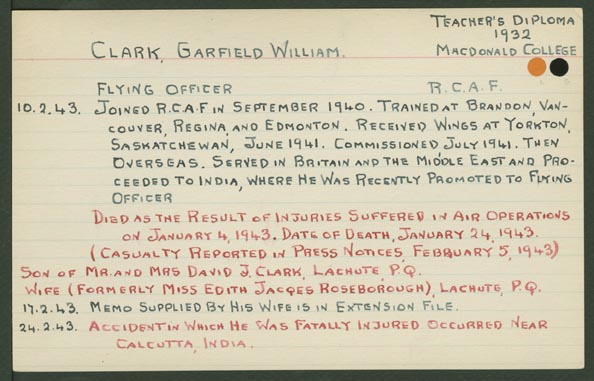 TEACHER'S DIPLOMA
1932
CLARK, GARFIELD WILLIAM. MACDONALD COLLEGE
FLYING OFFICER R.C.A.F.
10.2.43. JOINED R.C.A.F IN SEPTEMBER 1940. TRAINED AT BRANDON, VAN-
COUVER, REGINA, AND EDMONTON. RECEIVED WINGS AT YORKTON,
SASKATCHEWAN, JUNE 1941. COMMISSIONED JULY 1941. THEN
OVERSEAS. SERVED IN BRITAIN AND THE MIDDLE EAST AND PRO-
CEEDED TO INDIA, WHERE HE WAS RECENTLY PROMOTED TO FLYING
OFFICER
DIED AS THE RESULT OF INJURIES SUFFERED IN AIR OPERATIONS
ON JANUARY 4, 1943. DATE OF DEATH, JANUARY 24, 1943.
(CASUALTY REPORTED IN PRESS NOTICES, FEBRUARY 5, 1943)
SON OF MR. AND MRS DAVID J. CLARK, LACHUTE, P.Q.
WIFE (FORMERLY MISS EDITH JACQES ROSEBOROUGH), LACHUTE, P.Q.
17.2.43. MEMO SUPPLIED BY HIS WIFE IS IN EXTENSION FILE.
24.2.43. ACCIDENT IN WHICH HE WAS FATALLY INJURED OCCURRED NEAR
CALCUTTA, INDIA.